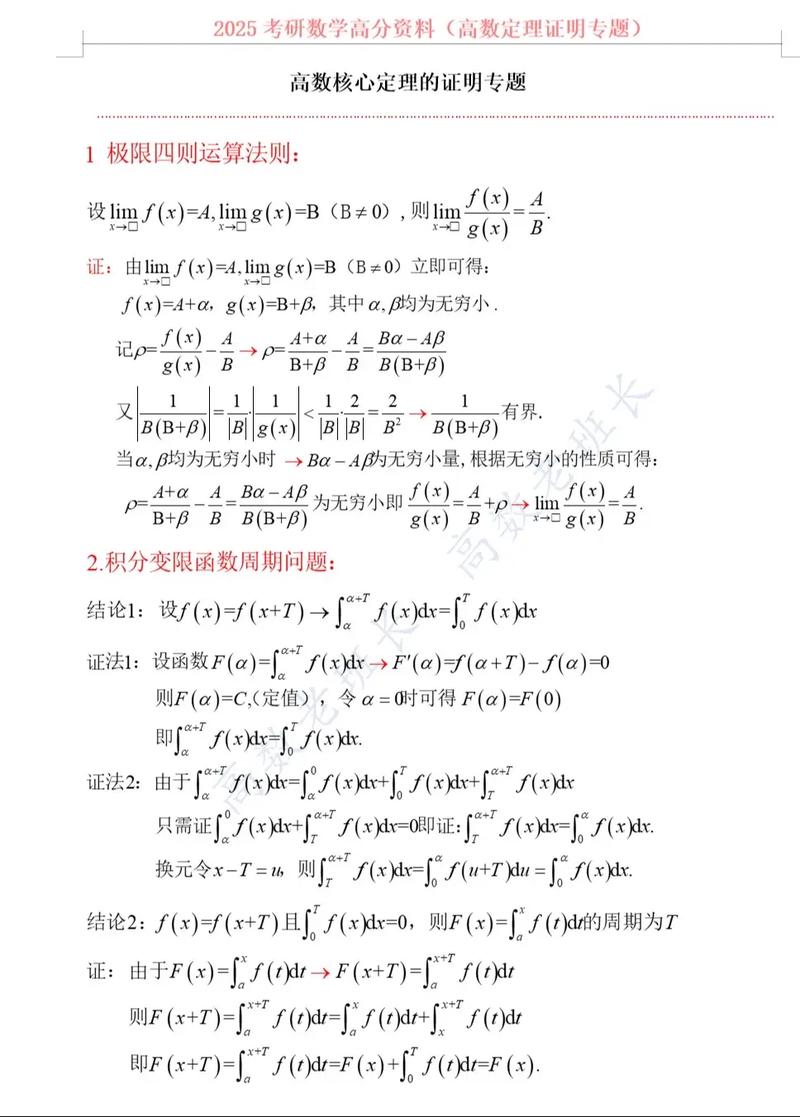 2025 考研数学高分资料（高数定理证明专题）
高数核心定理的证明专题
1 极限四则运算法则：
设 lim_{x→□} f(x)=A, lim_{x→□} g(x)=B（B≠0）, 则 lim_{x→□} f(x)/g(x) = A/B.
证：由 lim_{x→□} f(x)=A, lim_{x→□} g(x)=B（B≠0）立即可得：
f(x)=A+α，g(x)=B+β，其中α,β均为无穷小.
记ρ=f(x)/g(x) − A/B → ρ=(A+α)/(B+β) − A/B = (Bα−Aβ)/(B(B+β))
又 |1/(B(B+β))| = |1/B|·|1/g(x)| < |1/B|·|2/B| = 2/B² → 1/(B(B+β)) 有界.
当α,β均为无穷小时 → Bα−Aβ为无穷小量,根据无穷小的性质可得：
ρ=(A+α)/(B+β) − A/B = (Bα−Aβ)/(B(B+β)) 为无穷小即 f(x)/g(x) = A/B +ρ → lim_{x→□} f(x)/g(x) = A/B.
2.积分变限函数周期问题：
结论1：设f(x)=f(x+T) → ∫_α^{α+T} f(x)dx=∫_0^T f(x)dx
证法1：设函数F(α)=∫_α^{α+T} f(x)dx → F′(α)=f(α+T)−f(α)=0
则F(α)=C,（定值），令α=0时可得 F(α)=F(0)
即∫_α^{α+T} f(x)dx=∫_0^T f(x)dx.
证法2：由于∫_α^{α+T} f(x)dx=∫_α^0 f(x)dx+∫_0^T f(x)dx+∫_T^{α+T} f(x)dx
只需证∫_α^0 f(x)dx+∫_T^{α+T} f(x)dx=0即证:∫_T^{α+T} f(x)dx=∫_0^α f(x)dx.
换元令x−T=u，则∫_T^{α+T} f(x)dx=∫_0^α f(u+T)du=∫_0^α f(x)dx.
结论2：f(x)=f(x+T)且∫_0^T f(x)dx=0，则F(x)=∫_a^x f(t)dt的周期为T
证：由于F(x)=∫_a^x f(t)dt → F(x+T)=∫_a^{x+T} f(t)dt
则F(x+T)=∫_a^{x+T} f(t)dt=∫_a^x f(t)dt+∫_x^{x+T} f(t)dt
即F(x+T)=∫_a^{x+T} f(t)dt=F(x)+∫_0^T f(t)dt=F(x).
高数老班长
高数老班长